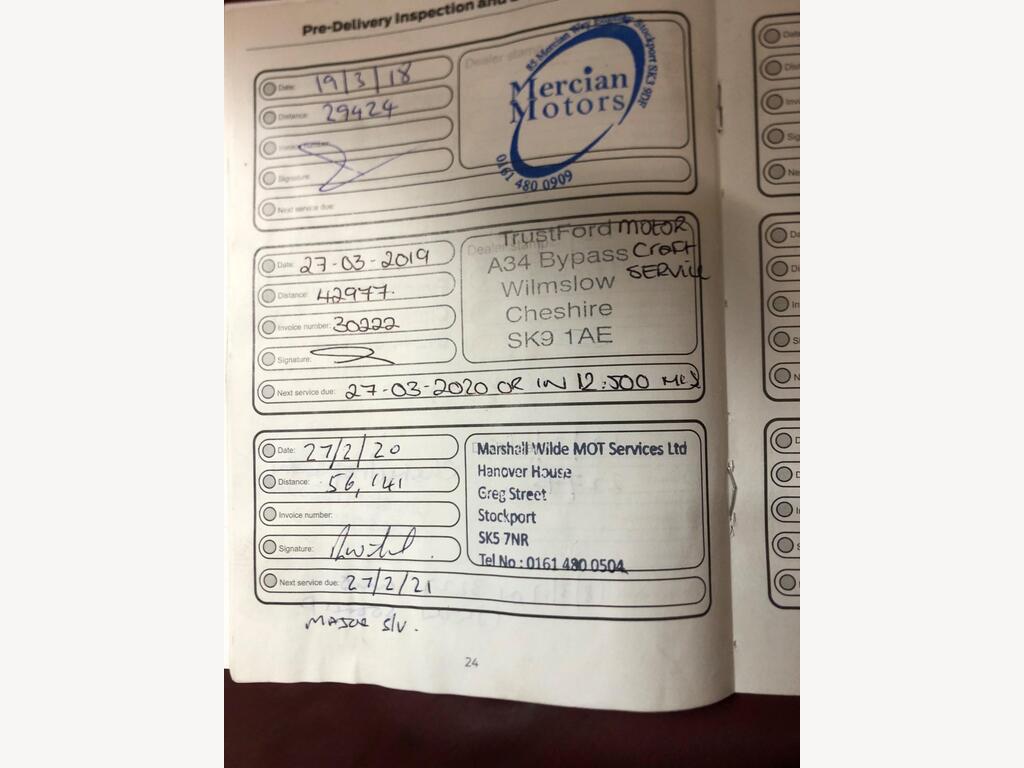 Pre-Delivery Inspection and
Date: 19/3/18
Distance: 29424
Invoice number:
Signature:
Next service due:
Dealer stamp
85 Mercian Way Stockport SK3 9DF
Mercian
Motors
0161 480 0909
Date: 27-03-2019
Distance: 42977.
Invoice number: 30222
Signature:
Next service due: 27-03-2020 OR IN 12.500 MLS
Dealer stamp
TrustFord MOTOR
A34 Bypass CRAFT
Wilmslow SERVICE
Cheshire
SK9 1AE
Date: 27/2/20
Distance: 56,141
Invoice number:
Signature:
Next service due: 27/2/21
Marshall Wilde MOT Services Ltd
Hanover House
Greg Street
Stockport
SK5 7NR
Tel No : 0161 480 0504
MAJOR S/V.
24